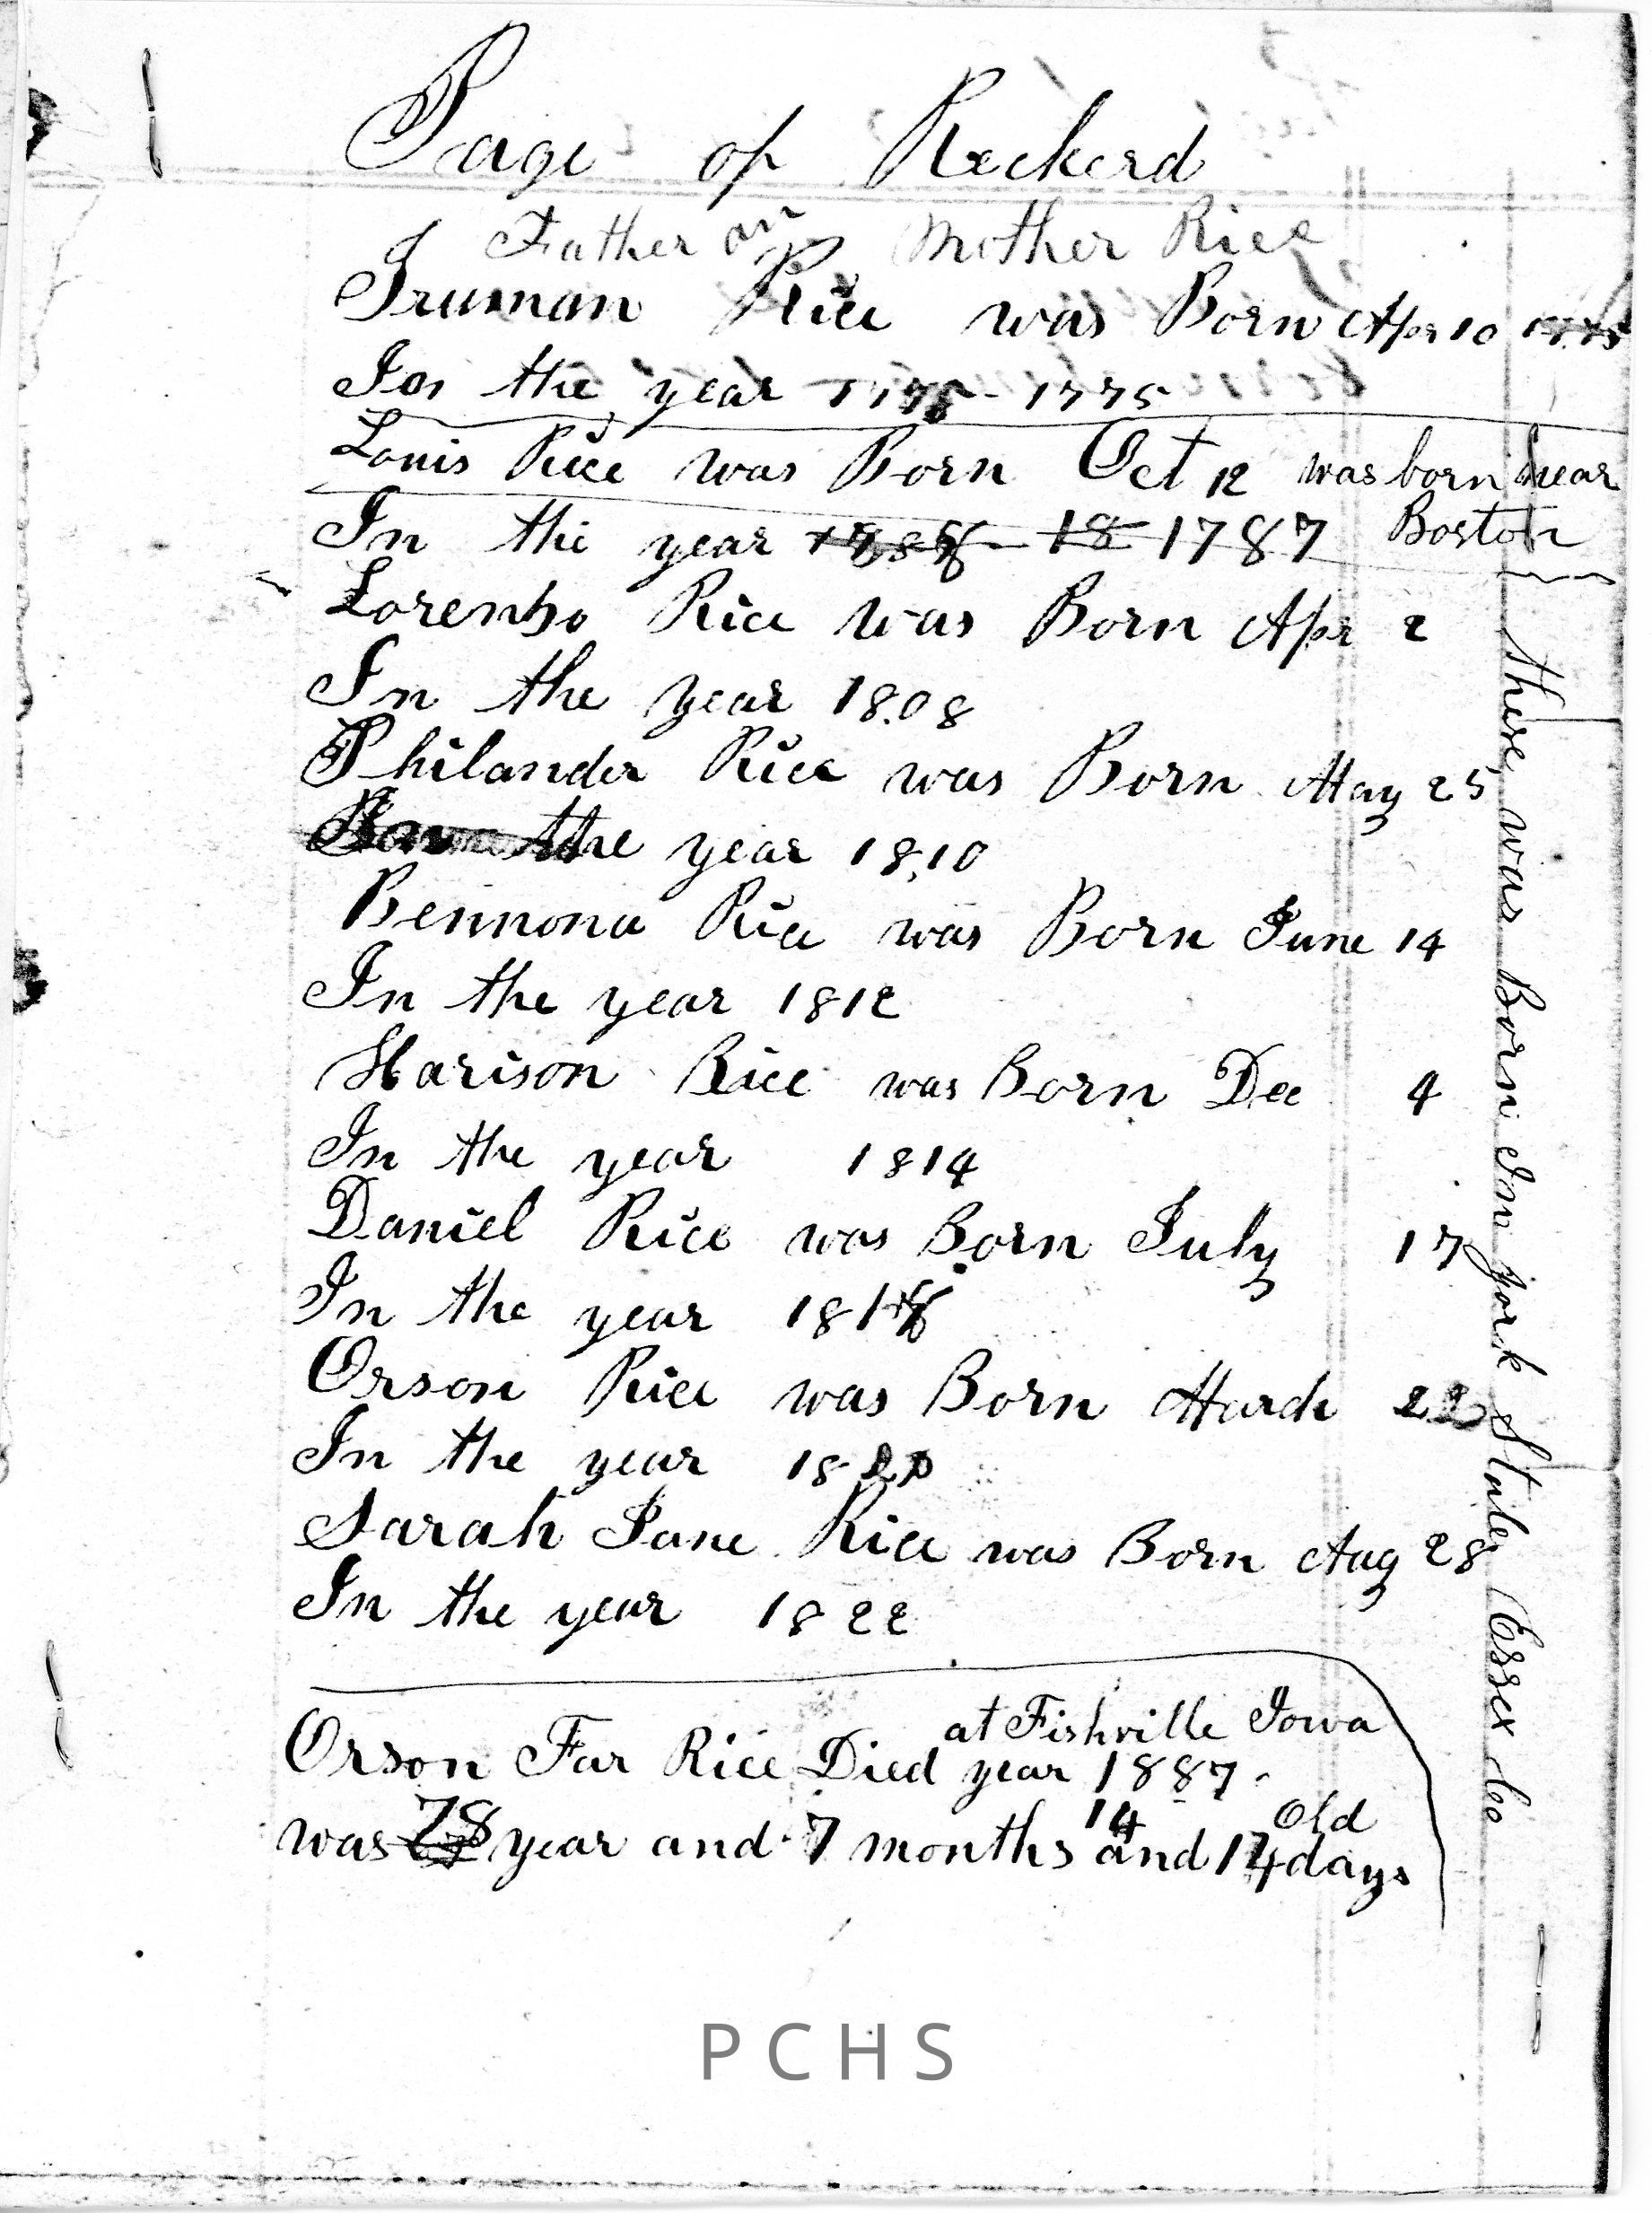 Page of Reckerd
Father an Mother Rice
Truman Rice was Born Apr 10
In the year 1775
Louis Rice was Born Oct 12 was born near
In the year 18 1787 Boston
Lorenso Rice was Born Apr 2
In the year 1808
Philander Rice was Born May 25
the year 1810
Bennona Rice was Born June 14
In the year 1812
Harison Rice was Born Dec 4
In the year 1814
Daniel Rice was Born July 17
In the year
Orson Rice was Born March 22
In the year 1820
Sarah Jane Rice was Born Aug 28
In the year 1822
these was Born In york State Essex Co
at Fishville Iowa
Orson Far Rice Died year 1887.
14 Old
was 78 year and 7 months and 14 days
PCHS